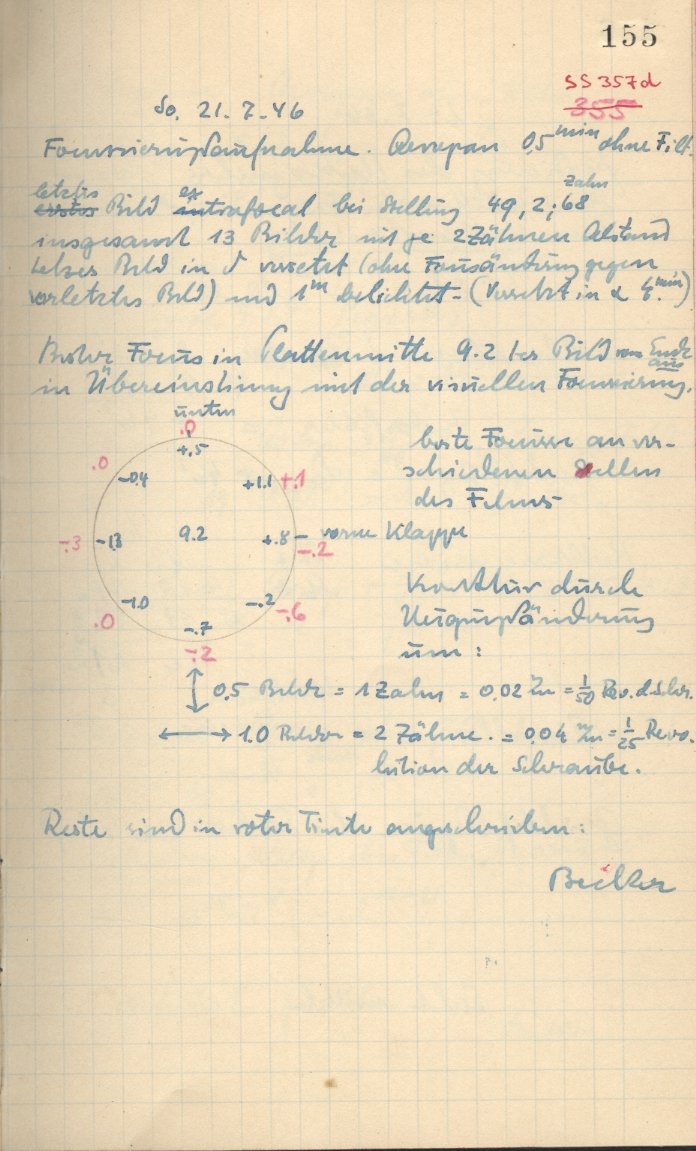 155
SS 357d
355
So. 21.7.46
Focussierungsaufnahme. Aeropan 0,5 min ohne Filt.
letztes Zahn
erstes Bild ex intrafocal bei Stellung 49,2; 68
insgesamt 13 Bilder mit je 2 Zähnen Abstand
letztes Bild in δ versetzt (ohne Focusänderung gegen
vorletztes Bild) und 1m belichtet - (versetzt in α min)
Focus in Plattenmitte 9.2 tes Bild vom Ende aus
in Übereinstimmung mit der visuellen Focussierung.
unten
.0
+.5
.0
-0.4
+1.1 +.1
-.3 -1.3
9.2
+.8 - vorne Klappe
-.2
-1.0
.0
-.2
-.6
-.7
-.2
beste Focusse an ver-
schiedenen Stellen
des Films
Korrektur durch
Neigungsänderung
um:
0,5 Bilder = 1 Zahn = 0,02 = 1/50 Rev. d. Schr.
1.0 Bilder = 2 Zähne. = 0,04 = 1/25 Revo-
lution der Schraube.
Reste sind in roter Tinte angeschrieben:
Becker